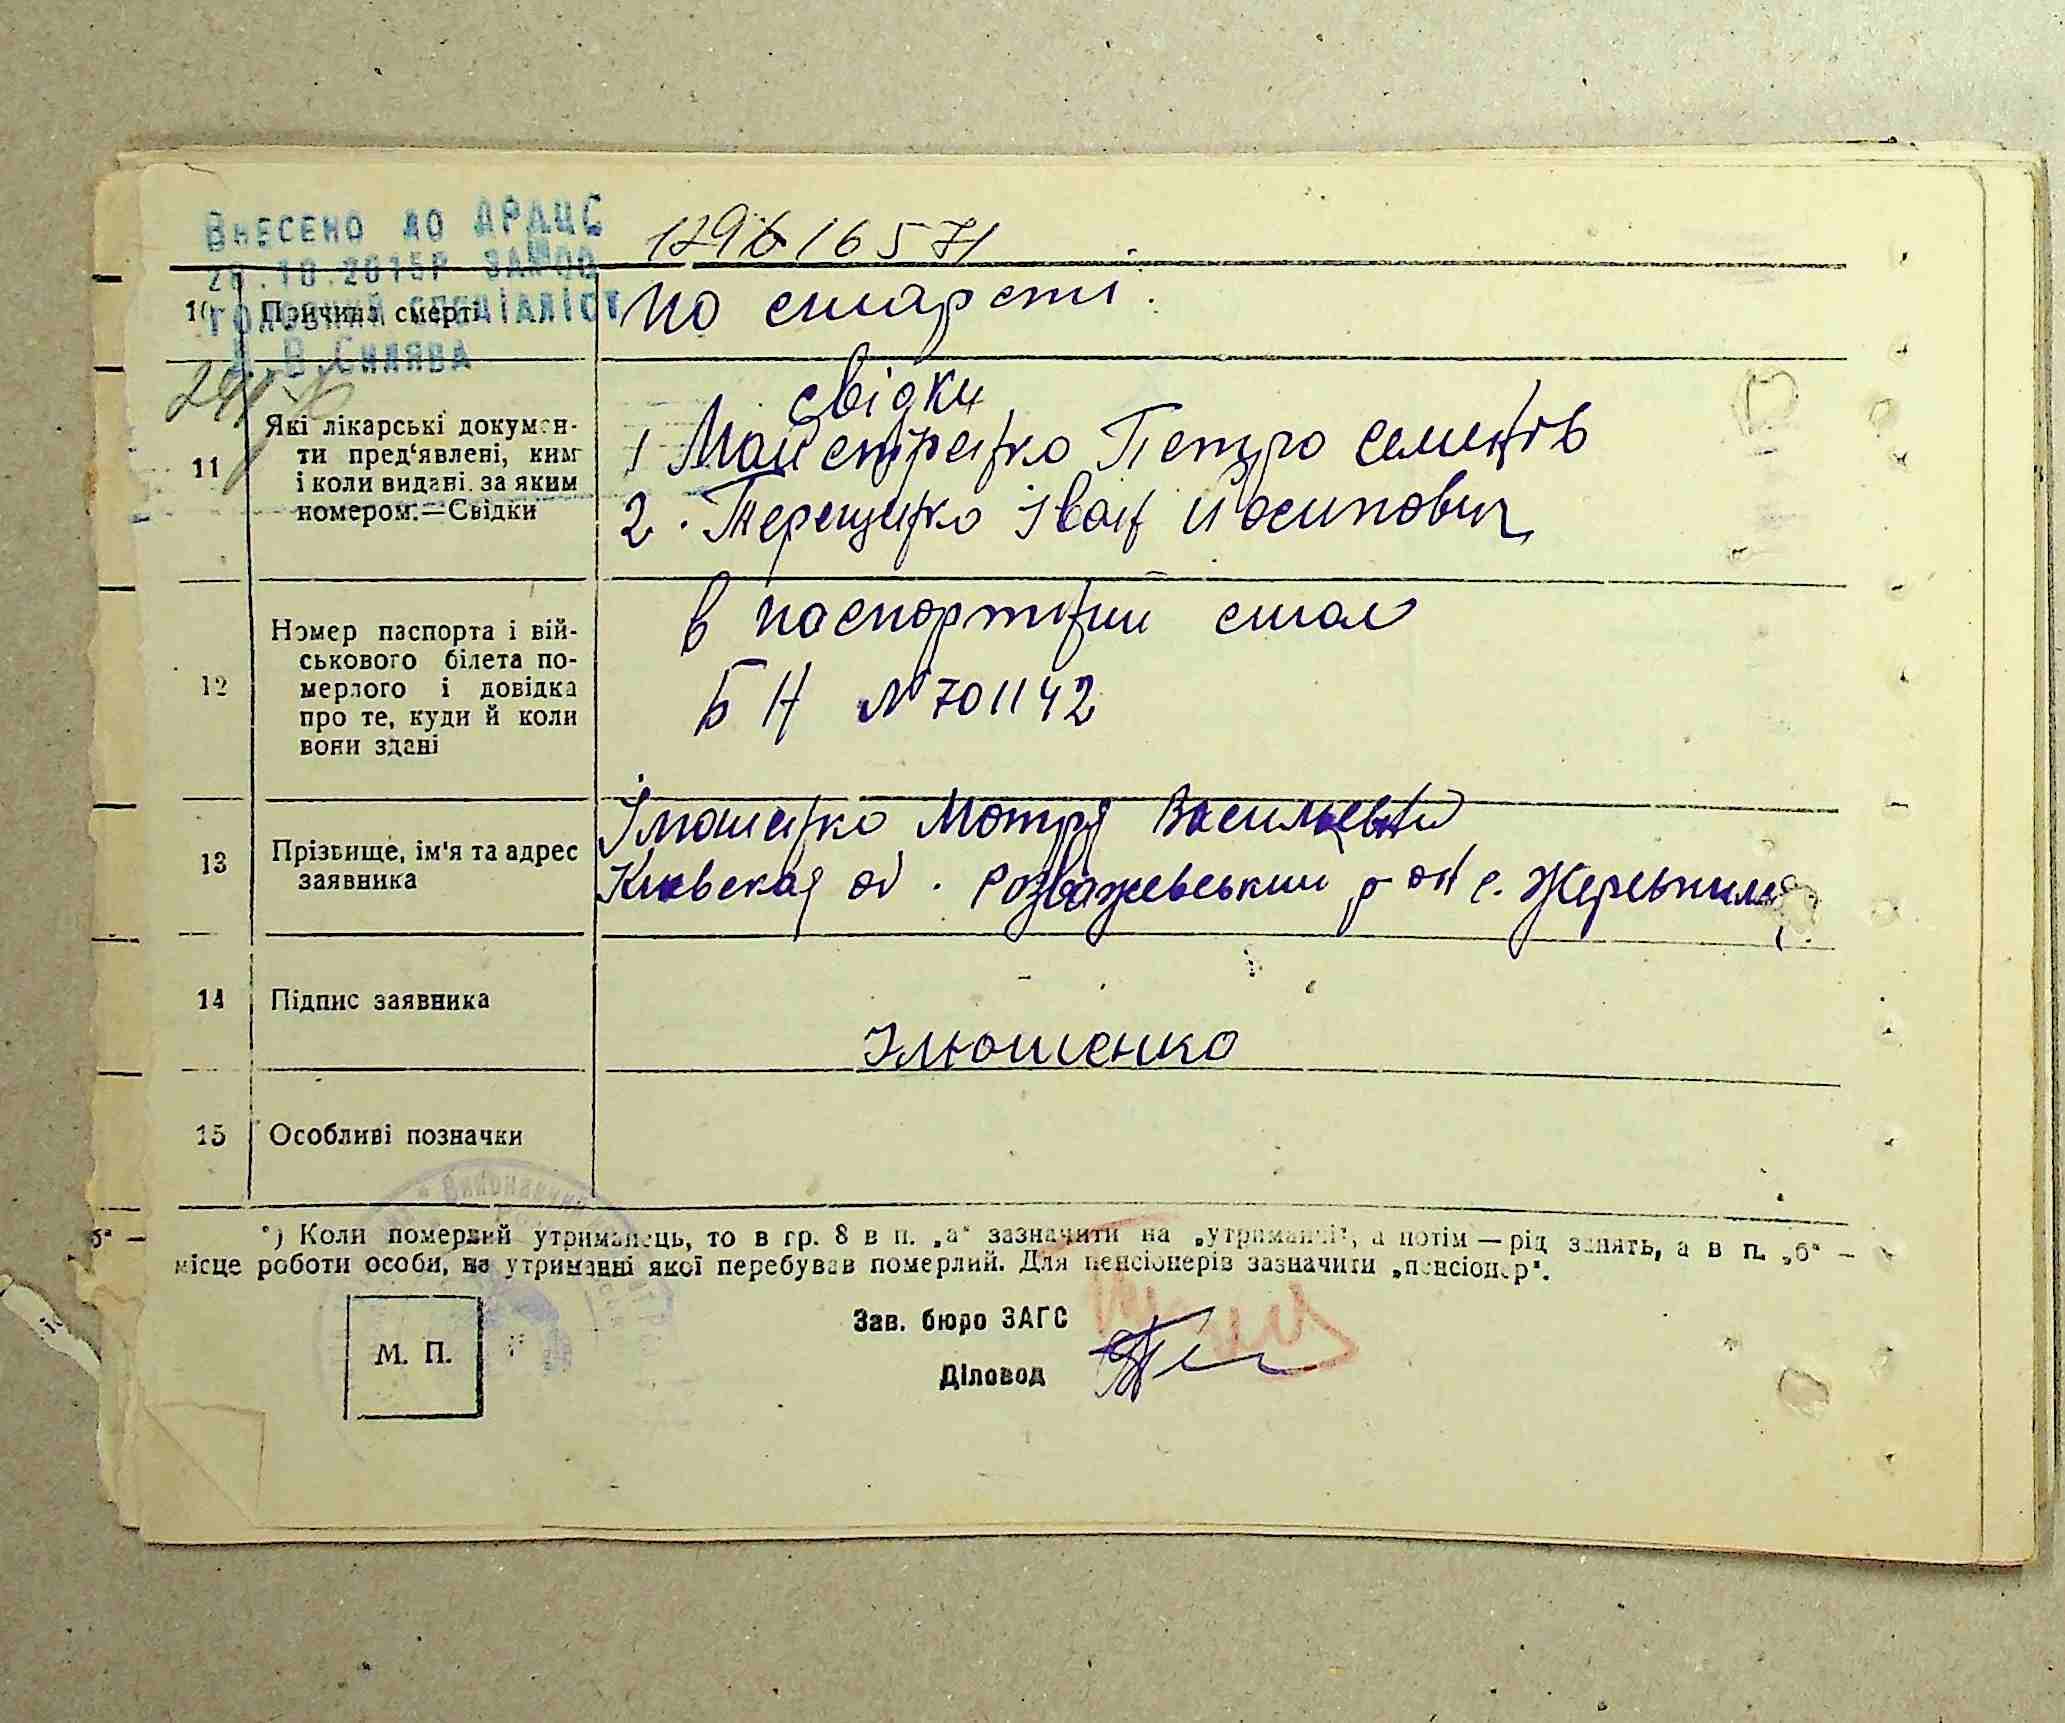 Внесено до ДРАЦС
129616571
.10.2015р
головний спеціаліст
В. Силява
10 Причина смерті
По старості.
11 Які лікарські докумен-
ти пред'явлені, ким
і коли видані. за яким
номером.—Свідки
свідки
1 Майстренко Петро Семенов
2. Терещенко Іван Йосипович
12 Номер паспорта і вій-
ськового білета по-
мерлого і довідка
про те, куди й коли
вони здані
в паспортний стол
БН № 701142
13 Прізвище, ім'я та адрес
заявника
Ілюшенко Мотря Васильевна
Киевская об. Розважевський р-он с. Жерева
14 Підпис заявника
Илюшенко
15 Особливі позначки
*) Коли померлий утриманець, то в гр. 8 в п. „а" зазначити на „утриманні", а потім — рід занять, а в п. „б" —
місце роботи особи, на утриманні якої перебував померлий. Для пенсіонерів зазначити „пенсіонер".
Зав. бюро ЗАГС
М. П.
Діловод